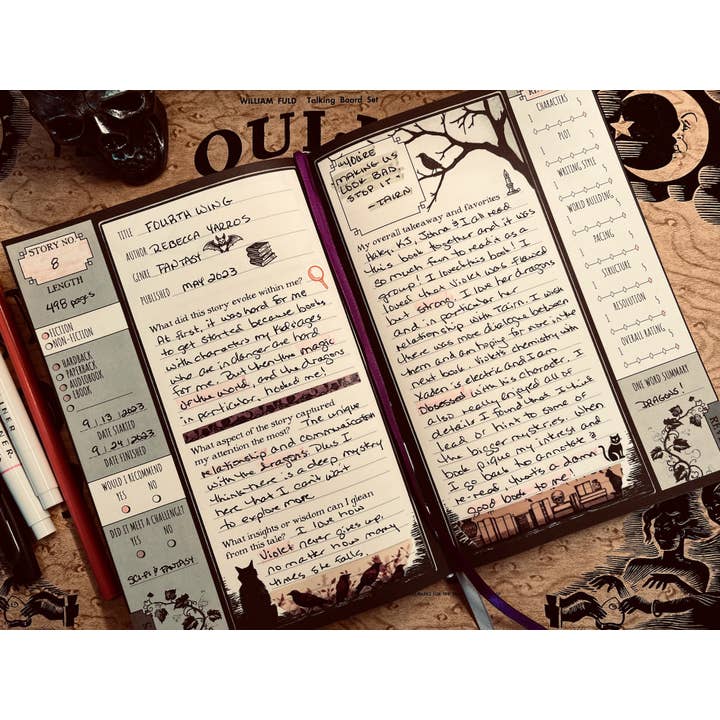 WILLIAM FULD Talking Board Set
OUIJ
STORY NO.
8
LENGTH
498 pages
FICTION
NON-FICTION
HARDBACK
PAPERBACK
AUDIOBOOK
EBOOK
9/13/2023
DATE STARTED
9/24/2023
DATE FINISHED
WOULD I RECOMMEND
YES NO
DID IT MEET A CHALLENGE?
YES NO
SCI-FI & FANTASY
TITLE FOURTH WING
AUTHOR REBECCA YARROS
GENRE FANTASY
PUBLISHED MAY 2023
What did this story evoke within me?
At first, it was hard for me
to get started because books
with characters my kids ages
who are in danger are hard
for me. But then the magic
of the world, and the dragons
in particular, hooked me!
What aspect of the story captured
my attention the most? The unique
relationship and communication
with the dragons. Plus I
think there is a deep mystery
here that I can't wait
to explore more.
What insights or wisdom can I glean
from this tale? I love how
Violet never gives up,
no matter how many
times she falls.
"YOU'RE
MAKING US
LOOK BAD.
STOP IT."
-TAIRN
My overall takeaway and favorites
Haley, KJ, John & I all read
this book together and it was
so much fun to read it as a
group! I loved this book! I
loved that Violet was flawed
but strong. I love her dragons
and in particular her
relationship with Tairn. I wish
there was more dialogue between
them and am hoping for more in the
next book. Violet's chemistry with
Xaden is electric and I am
Obsessed with his character. I
also really enjoyed all of
details I found that I think
lead or hint to some of
the bigger mysteries. When
book pique my interest and
I go back to annotate &
re-read, that's a damn
good book to me!
CHARACTERS
1 5
PLOT
1 5
WRITING STYLE
1 5
WORLD BUILDING
1 5
PACING
1 5
STRUCTURE
1 5
RESOLUTION
1 5
OVERALL RATING
1 5
ONE WORD SUMMARY
DRAGONS!